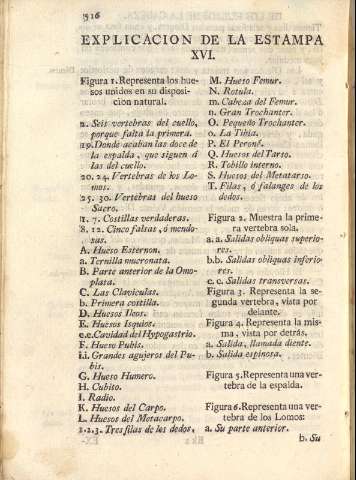 516
EXPLICACION DE LA ESTAMPA
XVI.
Figura 1. Representa los hue-
sos unidos en su disposi-
cion natural.
2. Seis vertebras del cuello,
porque falta la primera.
19. Donde acaban las doce de
la espalda, que siguen á
las del cuello.
20. 24. Vertebras de los Lo-
mos.
25. 30. Vertebras del hueso
Sacro.
1. 7. Costillas verdaderas.
8. 12. Cinco falsas, ó mendo-
sas.
A. Hueso Esternon.
a. Ternilla mucronata.
B. Parte anterior de la Omo-
plata.
C. Las Claviculas.
b. Primera costilla.
D. Huesos Ileos.
E. Huesos Isquios.
e.e. Cavidad del Hypogastrio.
F. Hueso Pubis.
i.i. Grandes agujeros del Pu-
bis.
G. Hueso Humero.
H. Cubito.
I. Radio.
K. Huesos del Carpo.
L. Huesos del Metacarpo.
1.2.3. Tres filas de los dedos,
M. Hueso Femur.
N. Rotula.
m. Cabeza del Femur.
n. Gran Trochanter.
O. Pequeño Trochanter.
o. La Tibia.
P. El Peroné.
Q. Huesos del Tarso.
R. Tobillo interno.
S. Huesos del Metatarso.
T. Filas, ó falanges de los
dedos.
Figura 2. Muestra la prime-
ra vertebra sola.
a. a. Salidas obliquas superio-
res.
b.b. Salidas obliquas inferio-
res.
c. c. Salidas transversas.
Figura 3. Representa la se-
gunda vertebra, vista por
delante.
Figura 4. Representa la mis-
ma, vista por detrás.
a. Salida, llamada diente.
b. Salida espinosa.
Figura 5. Representa una ver-
tebra de la espalda.
Figura 6. Representa una ver-
tebra de los Lomos:
a. Su parte anterior.
b. Su